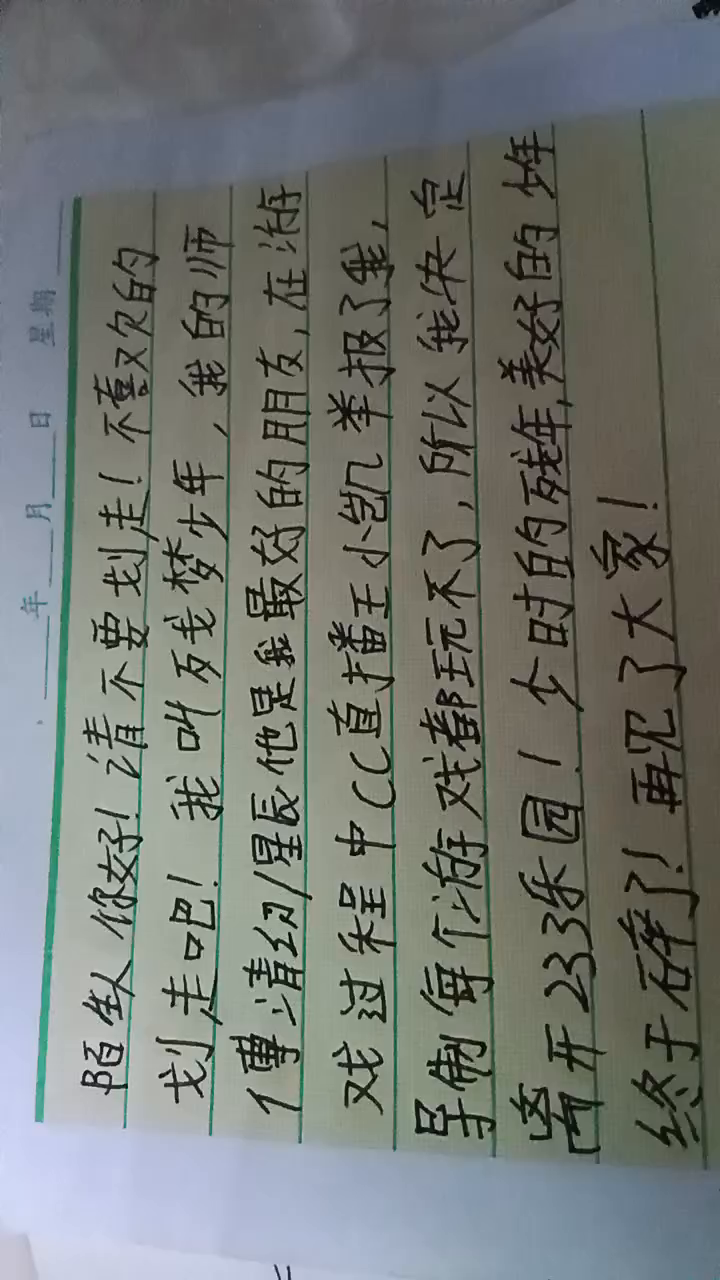 年 月 日 星期
陌生人你好!请不要划走!不喜欢的
划走吧!我叫残梦少年,我的师
傅清幻/星辰他是我最好的朋友,在游
戏过程中CC直播王小凯举报了我,
导制每个游戏都玩不了,所以我决定
离开233乐园!少时的残年,美好的少年
终于碎了!再见了大家!